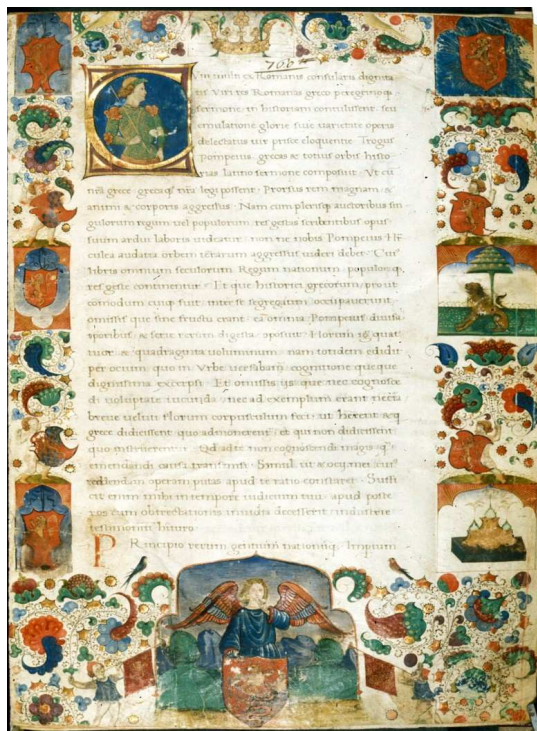 766
Cum multi ex Romanis consularis dignita
tis viri res Romanas greco peregrinoq.
sermone in historiam contulissent. seu
emulatione glorie siue uarietate operis
delectatus uir prisce eloquentie Trogus
pompeius. grecas & totius orbis histo
rias latino sermone composuit. Vt cū
nr̄a grece. grecaq; nr̄is legi possent. Prorsus rem magnam &
animi & corporis aggressus. Nam cum plerisq; auctoribus sin
gulorum regum uel populorum res gestas scribentibus opus
suum ardui laboris uideatur. non ne nobis Pompeius Her
culea audatia orbem terarum aggressus uideri debet. Cuius
libris omnium seculorum. Regum nationum. populorumq.
res geste continentur. Et que historici grecorum. prout
comodum cuiq; fuit inter se segregatim occupauerunt.
omissis que sine fructu erant. ea omnia Pompeius diuisa
temporibus & serie rerum digesta composuit. Horum igr̄ quat
tuor & quadraginta uoluminum. nam totidem edidit
per ocium quo in Vrbe uersabar̄. cognitione queque
dignissima excerpsi. Et omissis ijs que nec cognosce
di uoluptate iucunda. nec ad exemplum erant necessaria
breue ueluti florum corpusculum feci. ut haberent & q
grece didicissent. quo admonerent. et qui non didicissent
quo instruerentur. Qd ad te non cognoscendi magis q̄
emendandi causa transmisi. Simul ut & ocij mei cuius
reddendam operam putas apud te ratio constaret. Suffi
cit enim mihi in tempore iudicium tuū. apud poste
ros cum obtrectationis inuidia decesserit. industrie
testimonium hituro.
PRincipio rerum gentium nationūq. Imperium